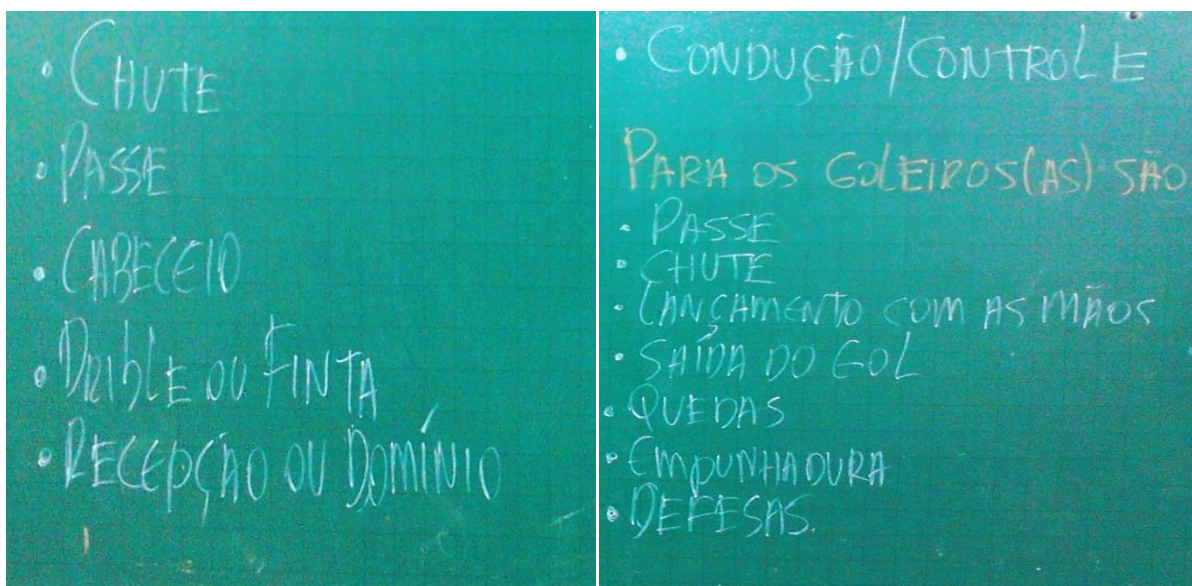 • CHUTE
• PASSE
• CABECEIO
• DRIBLE OU FINTA
• RECEPÇÃO OU DOMÍNIO
• CONDUÇÃO/CONTROLE
PARA OS GOLEIROS(AS) SÃO
• PASSE
• CHUTE
• LANÇAMENTO COM AS MÃOS
• SAÍDA DO GOL
• QUEDAS
• EMPUNHADURA
• DEFESAS.